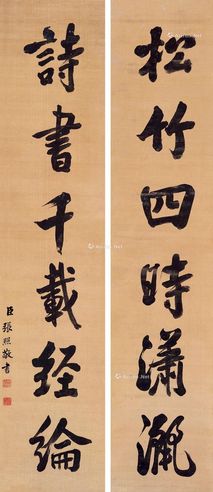 松竹四時瀟灑
詩書千載經綸
臣張照敬書